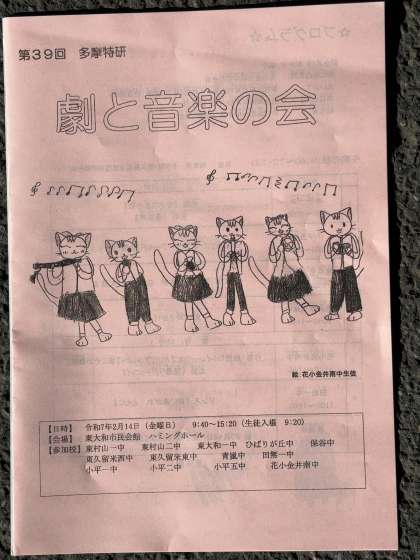 第39回 多摩特研
劇と音楽の会
絵:花小金井南中生徒
【日時】 令和7年2月14日(金曜日) 9:40~15:20(生徒入場 9:20)
【会場】 東大和市民会館 ハミングホール
【参加校】東村山一中 東村山二中 東大和一中 ひばりが丘中 保谷中
東久留米西中 東久留米東中 青嵐中 田無一中
小平一中 小平二中 小平五中 花小金井南中
☆プログラム☆